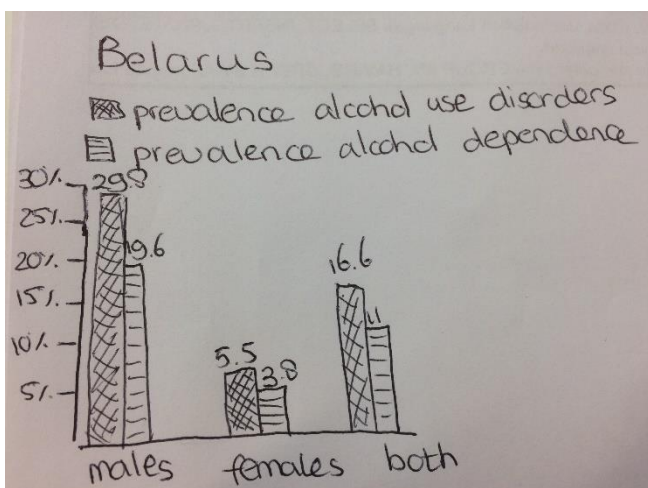 Belarus
prevalence alcohol use disorders
prevalence alcohol dependence
30%
25%
20%
15%
10%
5%
29.9
19.6
5.5
3.8
16.6
11
males females both